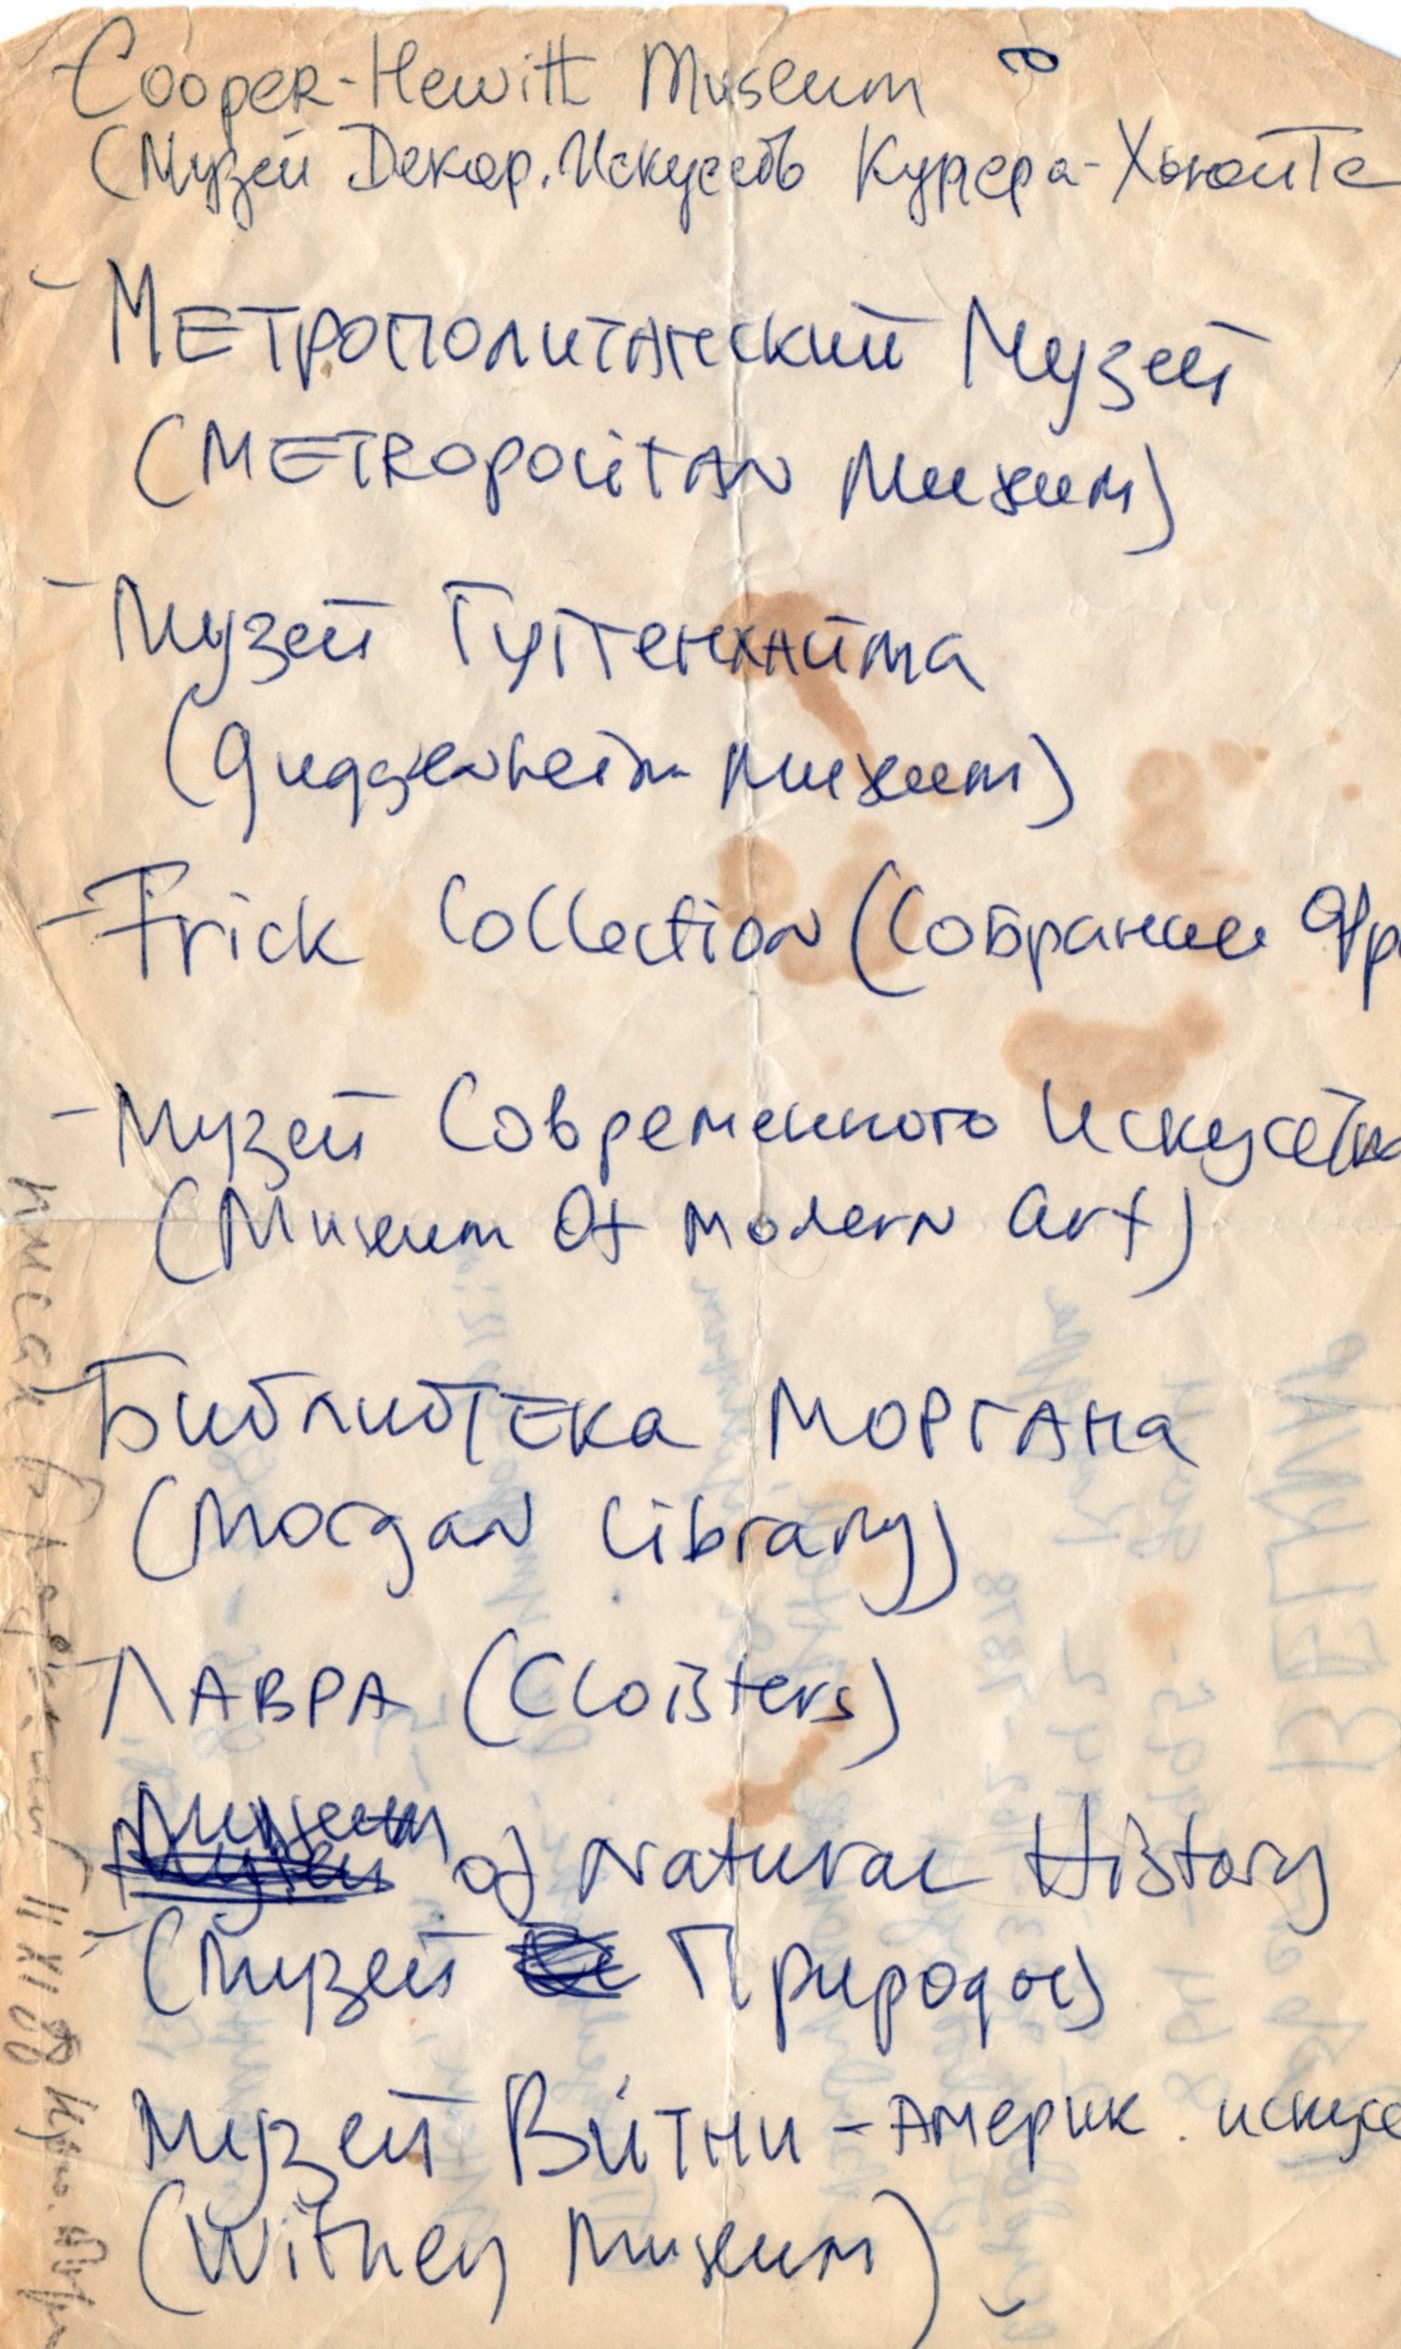 Cooper-Hewitt Museum
(Музей Декор. Искусств Купера-Хьюитта
- Метрополитанский Музей
(Metropolitan Museum)
- Музей Гуггенхайма
(Guggenheim Museum)
- Frick Collection (Собрание Фр
- Музей Современного Искусства
(Museum Of Modern Art)
Библиотека Моргана
(Morgan Library)
- Лавра (Cloisters)
Museum of Natural History
- (Музей Природы)
Музей Витни - Америк. искусс
(Witney Museum)
писал